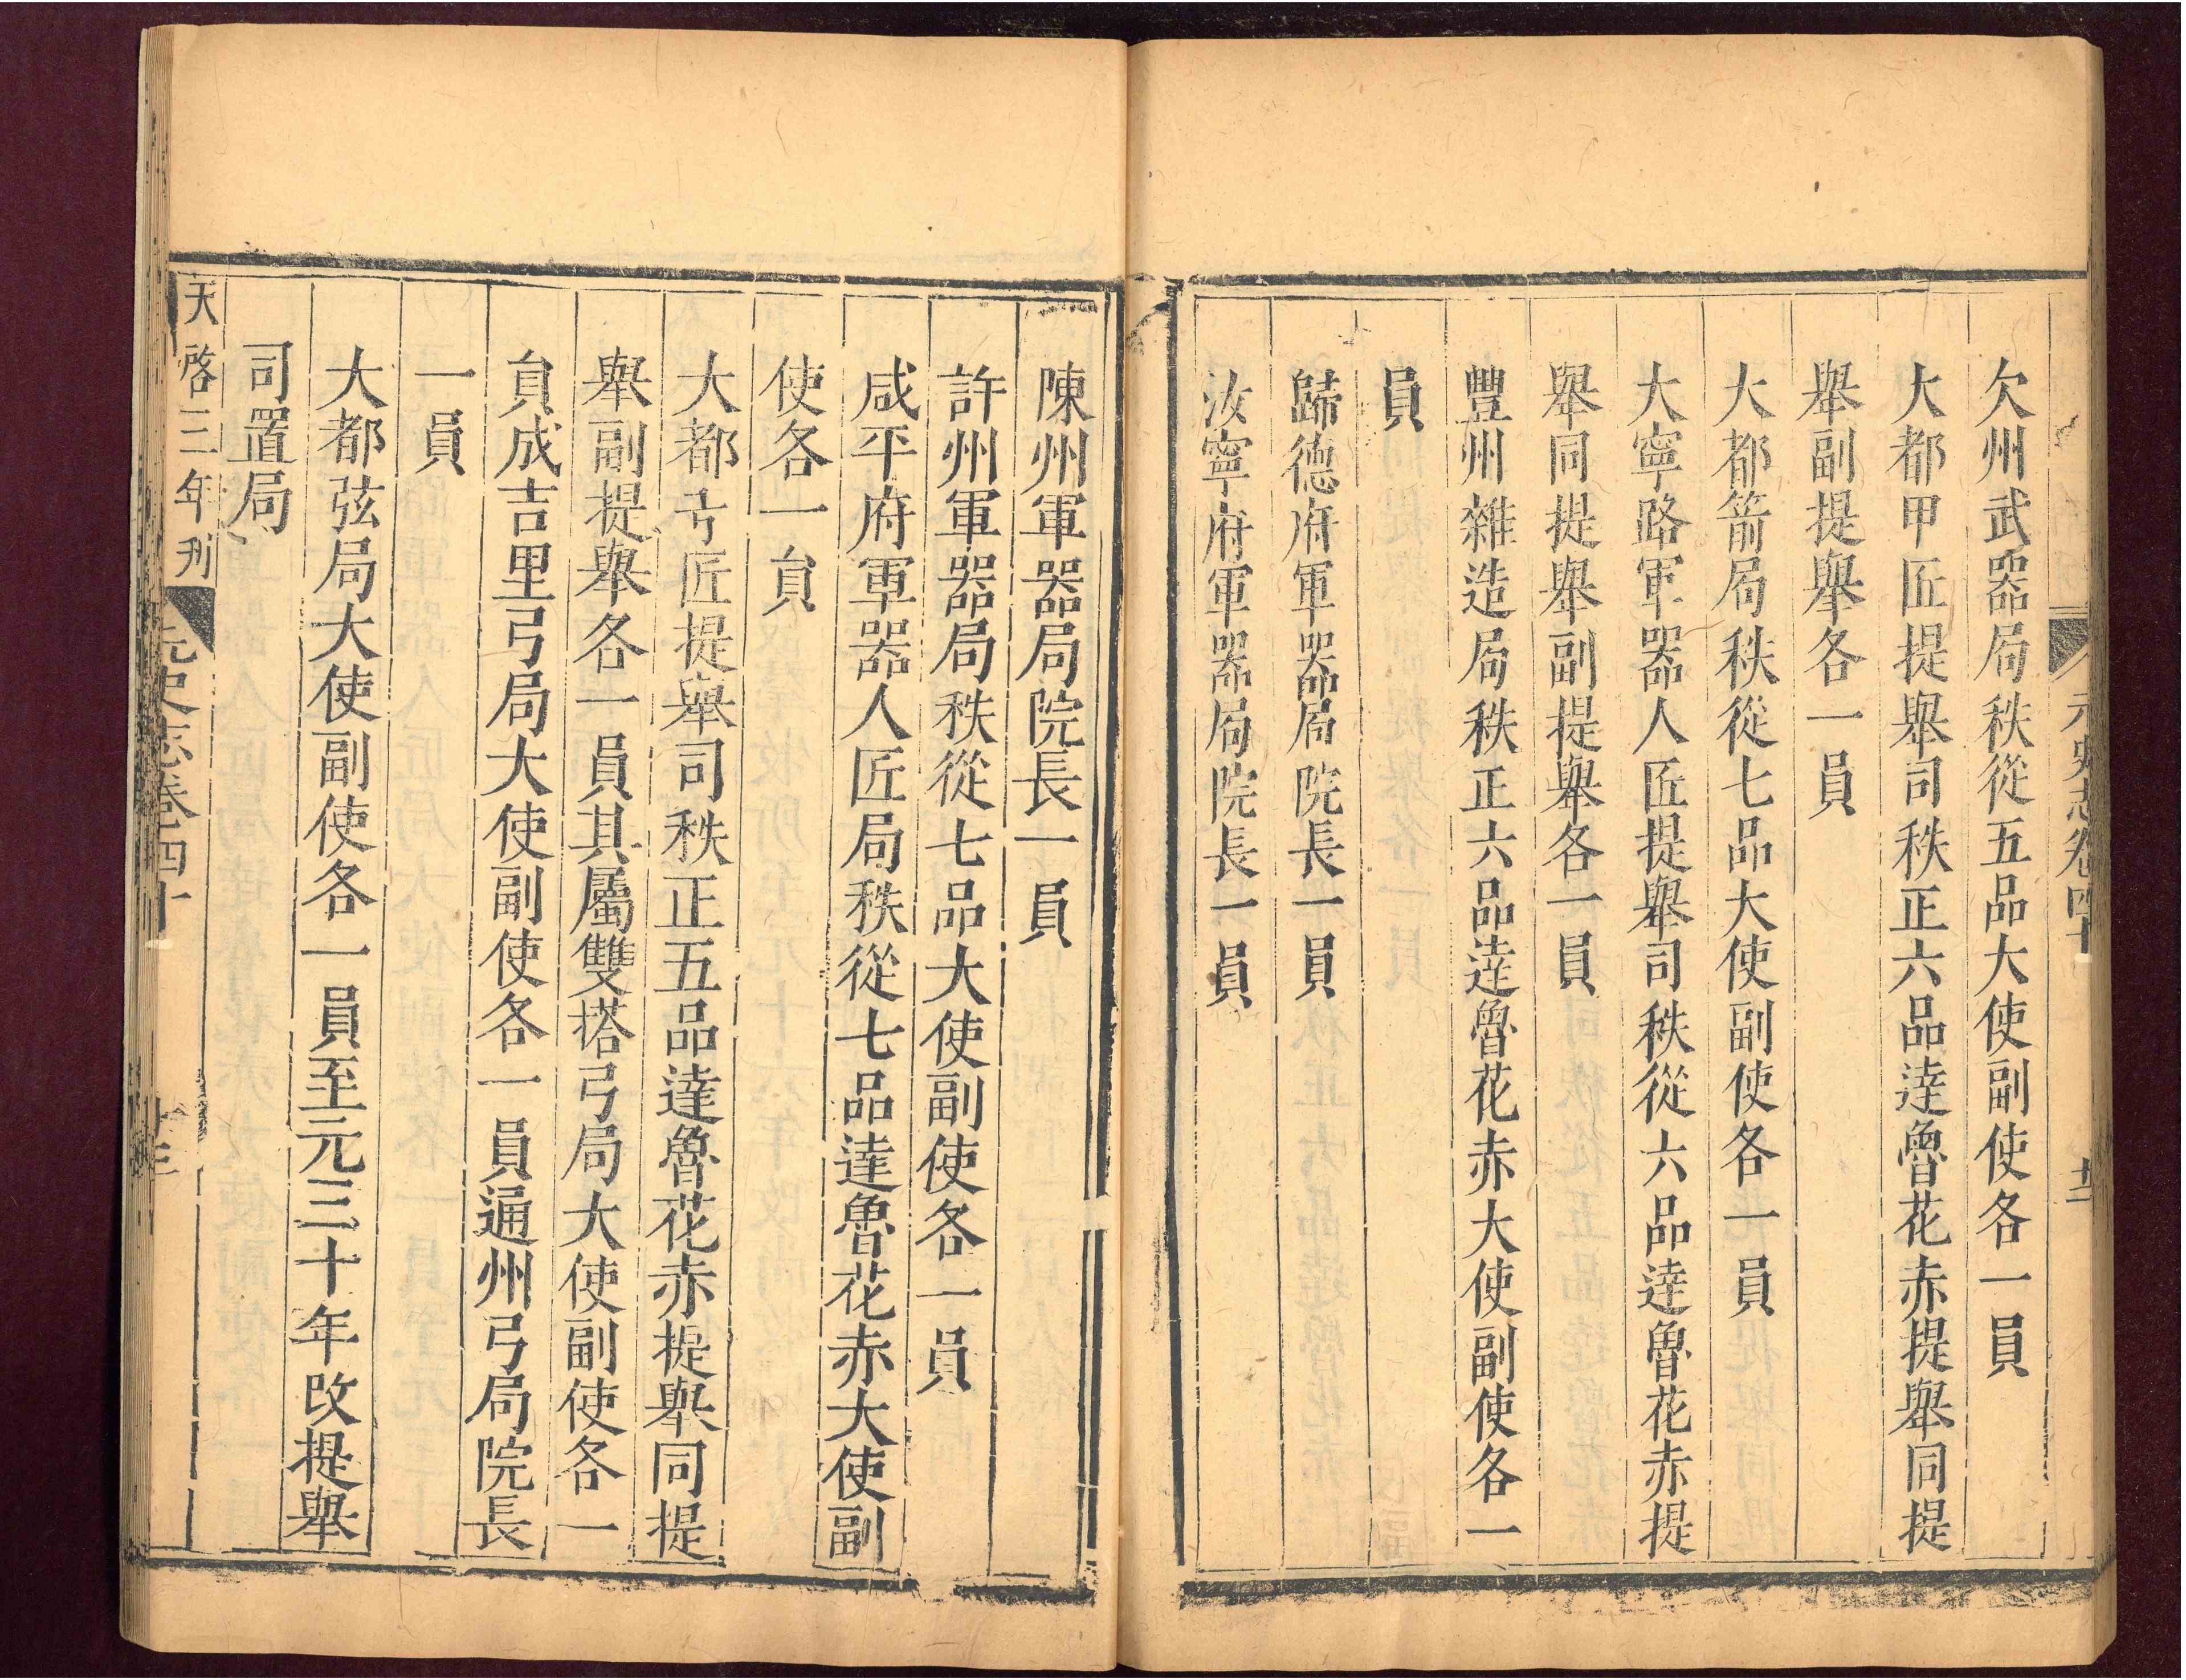 元史志卷四十
十二
欠州武器局秩從五品大使副使各一員
大都甲匠提舉司秩正六品逹魯花赤提舉同提
舉副提舉各一員
大都箭局秩從七品大使副使各一員
大寧路軍器人匠提舉司秩從六品逹魯花赤提
舉同提舉副提舉各一員
豐州雜造局秩正六品逹魯花赤大使副使各一
員
歸德府軍器局院長一員
汝寧府軍器局院長一員
陳州軍器局院長一員
許州軍器局秩從七品大使副使各一員
咸平府軍器人匠局秩從七品達魯花赤大使副
使各一貟
大都弓匠提舉司秩正五品達魯花赤提舉同提
舉副提舉各一員其屬雙搭弓局大使副使各一
貟成吉里弓局大使副使各一員通州弓局院長
一員
大都弦局大使副使各一員至元三十年改提舉
司置局
天啓三年刋
元史志卷四十
十三